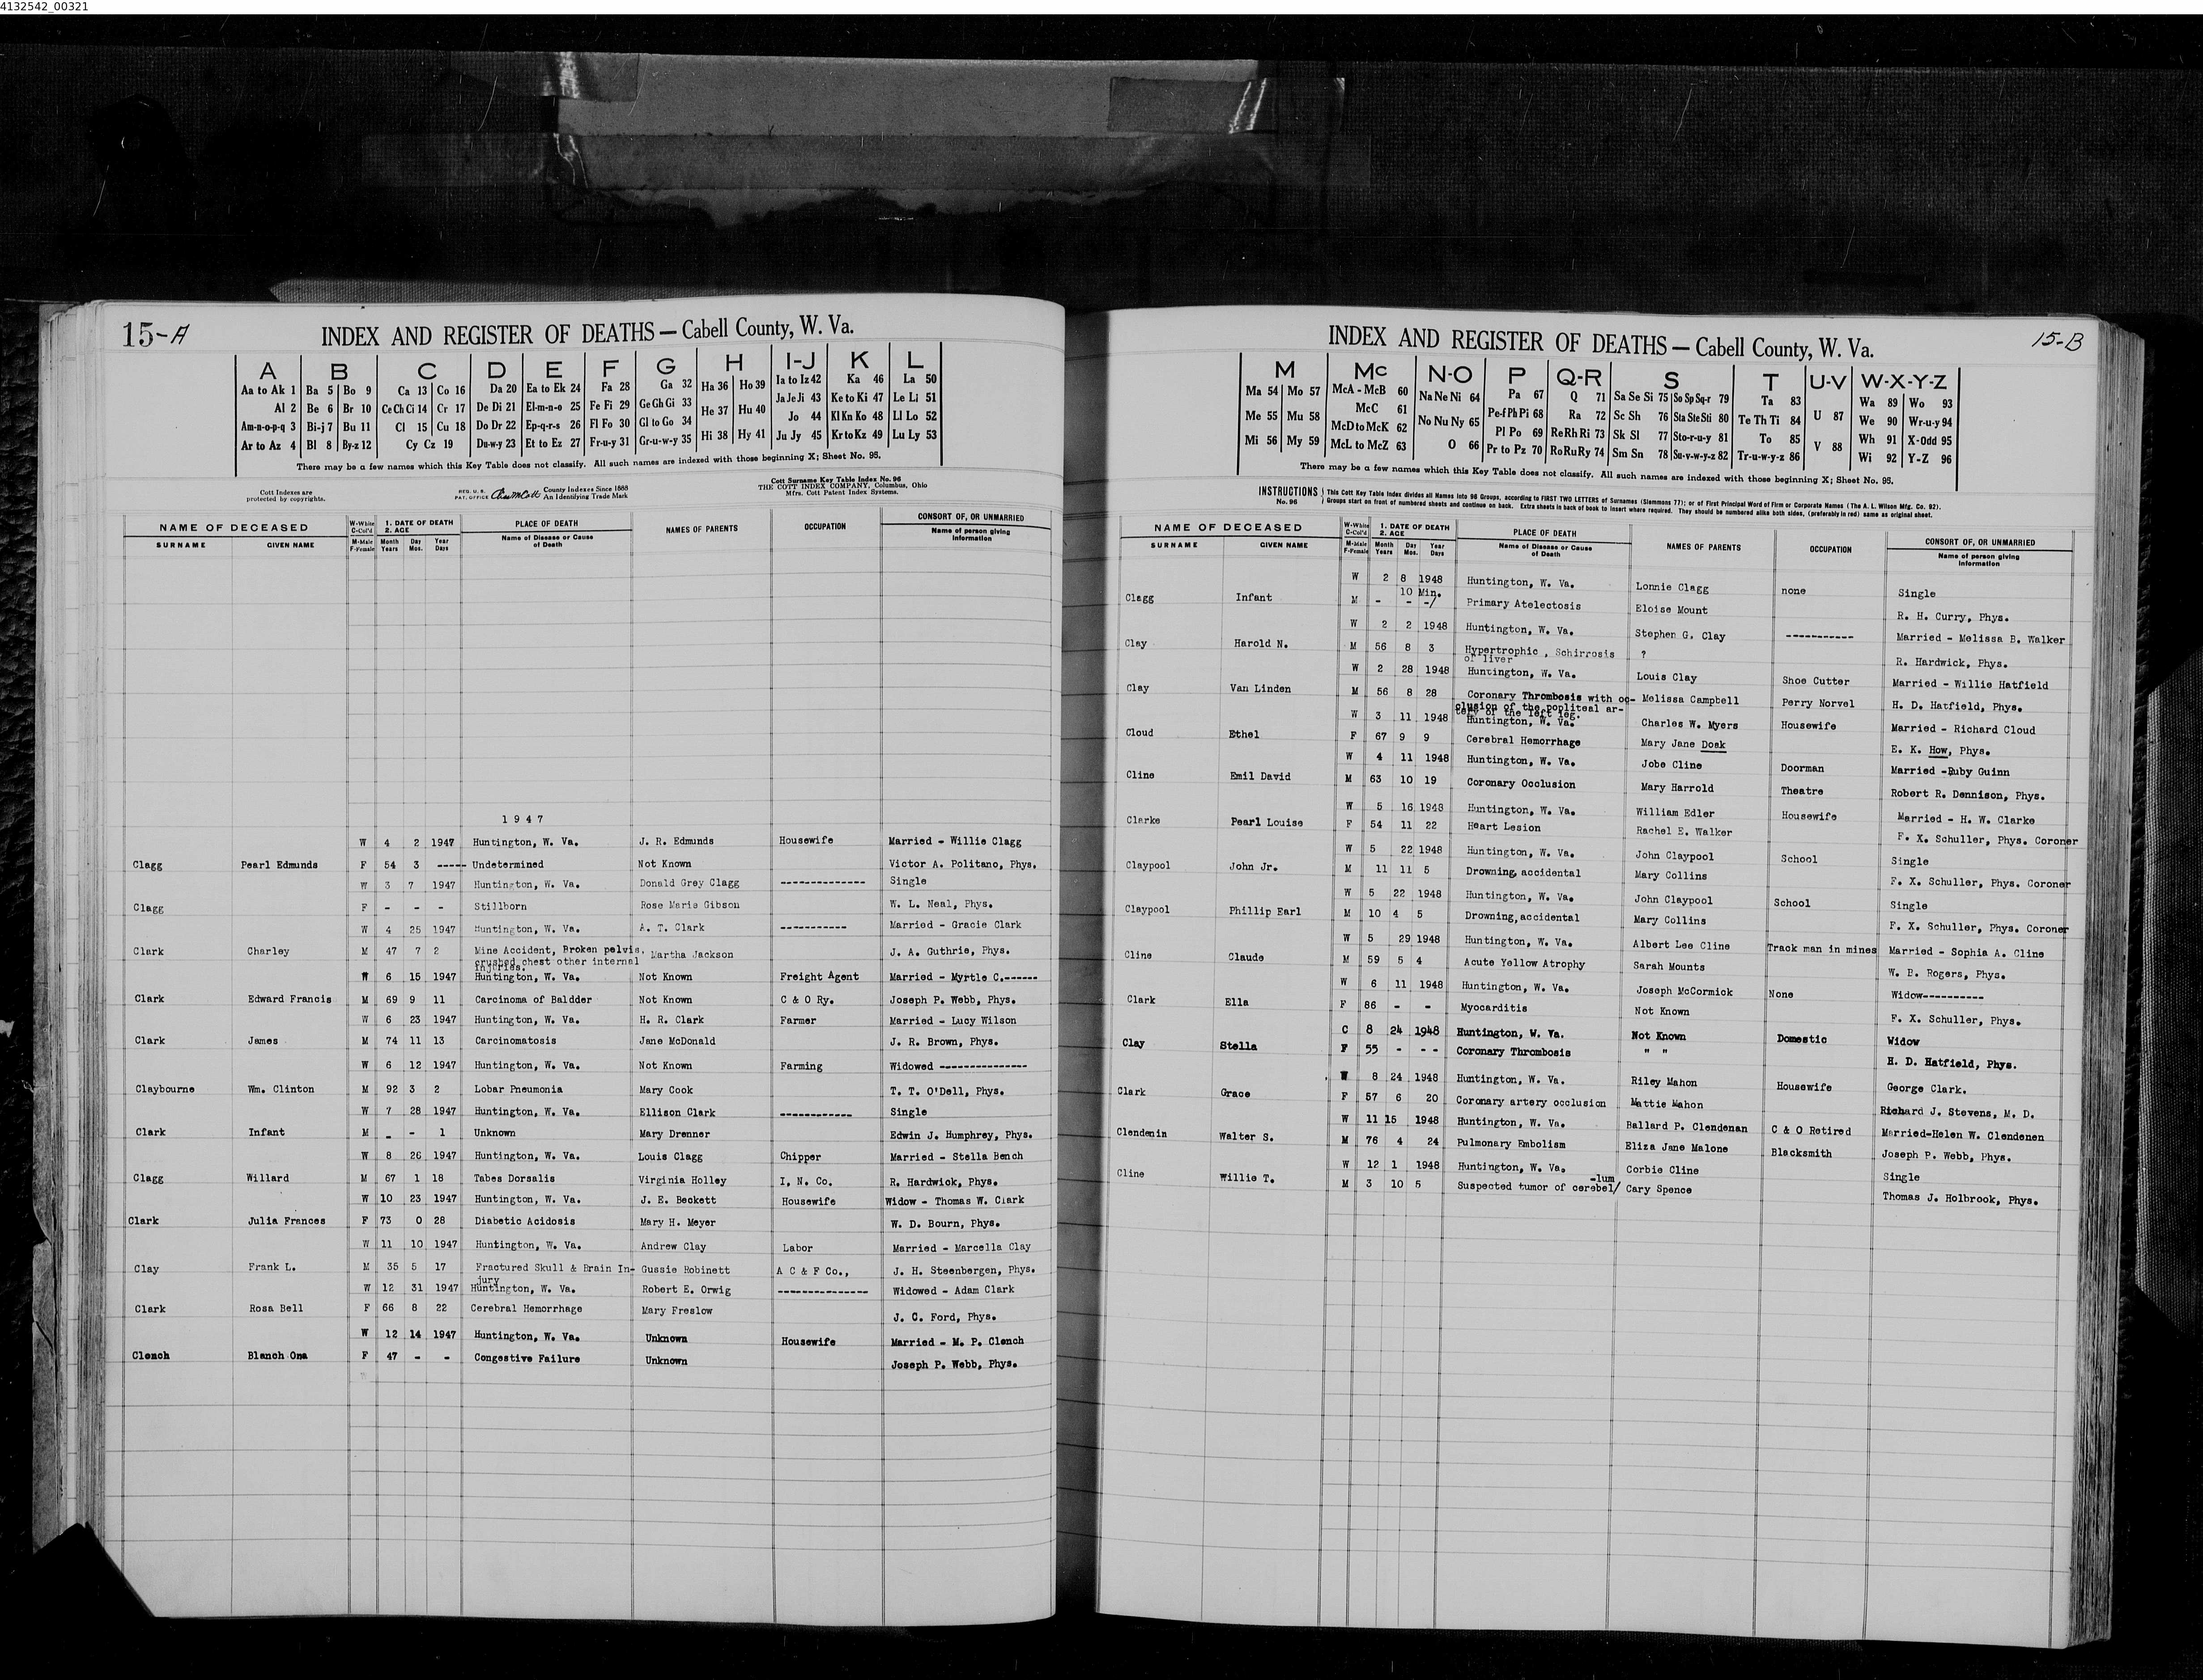 4132542_00321
15-A
INDEX AND REGISTER OF DEATHS — Cabell County, W. Va.
A B C D E F G H I-J K L
Aa to Ak 1 Ba 5 Bo 9 Ca 13 Co 16 Da 20 Ea to Ek 24 Fa 28 Ga 32 Ha 36 Ho 39 Ia to Iz 42 Ka 46 La 50
Al 2 Be 6 Br 10 Ce Ch Ci 14 Cr 17 De Di 21 El-m-n-o 25 Fe Fi 29 Ge Gh Gi 33 He 37 Hu 40 Ja Je Ji 43 Ke to Ki 47 Le Li 51
Am-n-o-p-q 3 Bi-j 7 Bu 11 Cl 15 Cu 18 Do Dr 22 Ep-q-r-s 26 Fl Fo 30 Gl to Go 34 Hi 38 Hy 41 Jo 44 Kl Kn Ko 48 Ll Lo 52
Ar to Az 4 Bl 8 By-z 12 Cy Cz 19 Du-w-y 23 Et to Ez 27 Fr-u-y 31 Gr-u-w-y 35 Ju Jy 45 Kr to Kz 49 Lu Ly 53
There may be a few names which this Key Table does not classify. All such names are indexed with those beginning X; Sheet No. 95.
Cott Indexes are protected by copyrights.
REG. U. S. PAT. OFFICE County Indexes Since 1888 An Identifying Trade Mark
Cott Surname Key Table Index No. 96
THE COTT INDEX COMPANY, Columbus, Ohio
Mfrs. Cott Patent Index Systems.
NAME OF DECEASED W-White C-Col'd 1. DATE OF DEATH 2. AGE PLACE OF DEATH NAMES OF PARENTS OCCUPATION CONSORT OF, OR UNMARRIED
SURNAME GIVEN NAME M-Male F-Female Month Years Day Mos. Year Days Name of Disease or Cause of Death Name of person giving Information
1 9 4 7
W 4 2 1947 Huntington, W. Va. J. R. Edmunds Housewife Married - Willie Clagg
Clagg Pearl Edmunds F 54 3 ----- Undetermined Not Known Victor A. Politano, Phys.
W 3 7 1947 Huntington, W. Va. Donald Grey Clagg -------------- Single
Clagg F - - - Stillborn Rose Marie Gibson W. L. Neal, Phys.
W 4 25 1947 Huntington, W. Va. A. T. Clark ----------- Married - Gracie Clark
Clark Charley M 47 7 2 Mine Accident, Broken pelvis, Martha Jackson J. A. Guthrie, Phys.
crushed chest other internal
injuries.
W 6 15 1947 Huntington, W. Va. Not Known Freight Agent Married - Myrtle C.------
Clark Edward Francis M 69 9 11 Carcinoma of Baldder Not Known C & O Ry. Joseph P. Webb, Phys.
W 6 23 1947 Huntington, W. Va. H. R. Clark Farmer Married - Lucy Wilson
Clark James M 74 11 13 Carcinomatosis Jane McDonald J. R. Brown, Phys.
W 6 12 1947 Huntington, W. Va. Not Known Farming Widowed ---------------
Claybourne Wm. Clinton M 92 3 2 Lobar Pneumonia Mary Cook T. T. O'Dell, Phys.
W 7 28 1947 Huntington, W. Va. Ellison Clark ------------ Single
Clark Infant M - - 1 Unknown Mary Drenner Edwin J. Humphrey, Phys.
W 8 26 1947 Huntington, W. Va. Louis Clagg Chipper Married - Stella Bench
Clagg Willard M 67 1 18 Tabes Dorsalis Virginia Holley I. N. Co. R. Hardwick, Phys.
W 10 23 1947 Huntington, W. Va. J. E. Beckett Housewife Widow - Thomas W. Clark
Clark Julia Frances F 73 0 28 Diabetic Acidosis Mary H. Meyer W. D. Bourn, Phys.
W 11 10 1947 Huntington, W. Va. Andrew Clay Labor Married - Marcella Clay
Clay Frank L. M 35 5 17 Fractured Skull & Brain In- Gussie Robinett A C & F Co., J. H. Steenbergen, Phys.
jury
W 12 31 1947 Huntington, W. Va. Robert E. Orwig --------------- Widowed - Adam Clark
Clark Rosa Bell F 66 8 22 Cerebral Hemorrhage Mary Freslow J. C. Ford, Phys.
W 12 14 1947 Huntington, W. Va. Unknown Housewife Married - M. P. Clench
Clench Blanch Ona F 47 - - Congestive Failure Unknown Joseph P. Webb, Phys.
INDEX AND REGISTER OF DEATHS — Cabell County, W. Va.
15-B
M Mc N-O P Q-R S T U-V W-X-Y-Z
Ma 54 Mo 57 McA - McB 60 Na Ne Ni 64 Pa 67 Q 71 Sa Se Si 75 So Sp Sq-r 79 Ta 83 U 87 Wa 89 Wo 93
Me 55 Mu 58 McC 61 No Nu Ny 65 Pe-f Ph Pi 68 Ra 72 Sc Sh 76 Sta Ste Sti 80 Te Th Ti 84 V 88 We 90 Wr-u-y 94
Mi 56 My 59 McD to McK 62 O 66 Pl Po 69 Re Rh Ri 73 Sk Sl 77 Sto-r-u-y 81 To 85 Wh 91 X-Odd 95
McL to McZ 63 Pr to Pz 70 Ro Ru Ry 74 Sm Sn 78 Su-v-w-y-z 82 Tr-u-w-y-z 86 Wi 92 Y-Z 96
There may be a few names which this Key Table does not classify. All such names are indexed with those beginning X; Sheet No. 95.
INSTRUCTIONS No. 96 This Cott Key Table Index divides all Names into 96 Groups, according to FIRST TWO LETTERS of Surnames (Slemmons 77); or of First Principal Word of Firm or Corporate Names (The A. L. Wilson Mfg. Co. 92).
Groups start on front of numbered sheets and continue on back. Extra sheets in back of book to insert where required. They should be numbered alike both sides, (preferably in red) same as original sheet.
NAME OF DECEASED W-White C-Col'd 1. DATE OF DEATH 2. AGE PLACE OF DEATH NAMES OF PARENTS OCCUPATION CONSORT OF, OR UNMARRIED
SURNAME GIVEN NAME M-Male F-Female Month Years Day Mos. Year Days Name of Disease or Cause of Death Name of person giving Information
W 2 8 1948 Huntington, W. Va. Lonnie Clagg none Single
10 Min.
Clagg Infant M - - -/ Primary Atelectosis Eloise Mount R. H. Curry, Phys.
W 2 2 1948 Huntington, W. Va. Stephen G. Clay ----------- Married - Melissa B. Walker
Clay Harold N. M 56 8 3 Hypertrophic , Schirrosis ? R. Hardwick, Phys.
of liver
W 2 28 1948 Huntington, W. Va. Louis Clay Shoe Cutter Married - Willie Hatfield
Clay Van Linden M 56 8 28 Coronary Thrombosis with oc- Melissa Campbell Perry Norvel H. D. Hatfield, Phys.
clusion of the popliteal ar-
tery of the left leg.
W 3 11 1948 Huntington, W. Va. Charles W. Myers Housewife Married - Richard Cloud
Cloud Ethel F 67 9 9 Cerebral Hemorrhage Mary Jane Doak E. K. How, Phys.
W 4 11 1948 Huntington, W. Va. Jobe Cline Doorman Married -Ruby Guinn
Cline Emil David M 63 10 19 Coronary Occlusion Mary Harrold Theatre Robert R. Dennison, Phys.
W 5 16 1948 Huntington, W. Va. William Edler Housewife Married - H. W. Clarke
Clarke Pearl Louise F 54 11 22 Heart Lesion Rachel E. Walker F. X. Schuller, Phys. Coroner
W 5 22 1948 Huntington, W. Va. John Claypool School Single
Claypool John Jr. M 11 11 5 Drowning, accidental Mary Collins F. X. Schuller, Phys. Coroner
W 5 22 1948 Huntington, W. Va. John Claypool School Single
Claypool Phillip Earl M 10 4 5 Drowning, accidental Mary Collins F. X. Schuller, Phys. Coroner
W 5 29 1948 Huntington, W. Va. Albert Lee Cline Track man in mines Married - Sophia A. Cline
Cline Claude M 59 5 4 Acute Yellow Atrophy Sarah Mounts W. B. Rogers, Phys.
W 6 11 1948 Huntington, W. Va. Joseph McCormick None Widow----------
Clark Ella F 86 - - Myocarditis Not Known F. X. Schuller, Phys.
C 8 24 1948 Huntington, W. Va. Not Known Domestic Widow
Clay Stella F 55 - - - Coronary Thrombosis " " H. D. Hatfield, Phys.
W 8 24 1948 Huntington, W. Va. Riley Mahon Housewife George Clark.
Clark Grace F 57 6 20 Coronary artery occlusion Mattie Mahon Richard J. Stevens, M. D.
W 11 15 1948 Huntington, W. Va. Ballard P. Clendenan C & O Retired Married-Helen W. Clendenen
Clendenin Walter S. M 76 4 24 Pulmonary Embolism Eliza Jane Malone Blacksmith Joseph P. Webb, Phys.
W 12 1 1948 Huntington, W. Va. Corbie Cline Single
-lum
Cline Willie T. M 3 10 5 Suspected tumor of cerebel/ Cary Spence Thomas J. Holbrook, Phys.